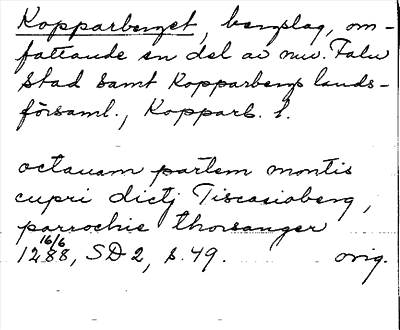 Kopparberget, bergslag, om-
fattande en del av nuv. Falu
stad samt Kopparbergs lands-
församl., Kopparb. l.
octauam partem montis
cupri dictj Tiscasioberg,
parrochie thorsanger
16/6
1288, SD 2, s. 49. orig.